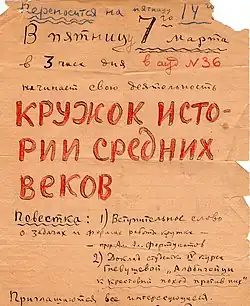 Переносится на пятницу 14го
В пятницу 7 марта
в 3 часа дня в ауд N36
начинает свою деятельность
КРУЖОК ИСТО-
РИИ СРЕДНИХ
ВЕКОВ
Повестка: 1) Вступительное слово
о задачах и формах работы кружка –
– проф. А. Фортунатов
2) Доклад студентки V курса
Гневушевой „Альбигойцы
и крестовый поход против них"
Приглашаются все интересующиеся